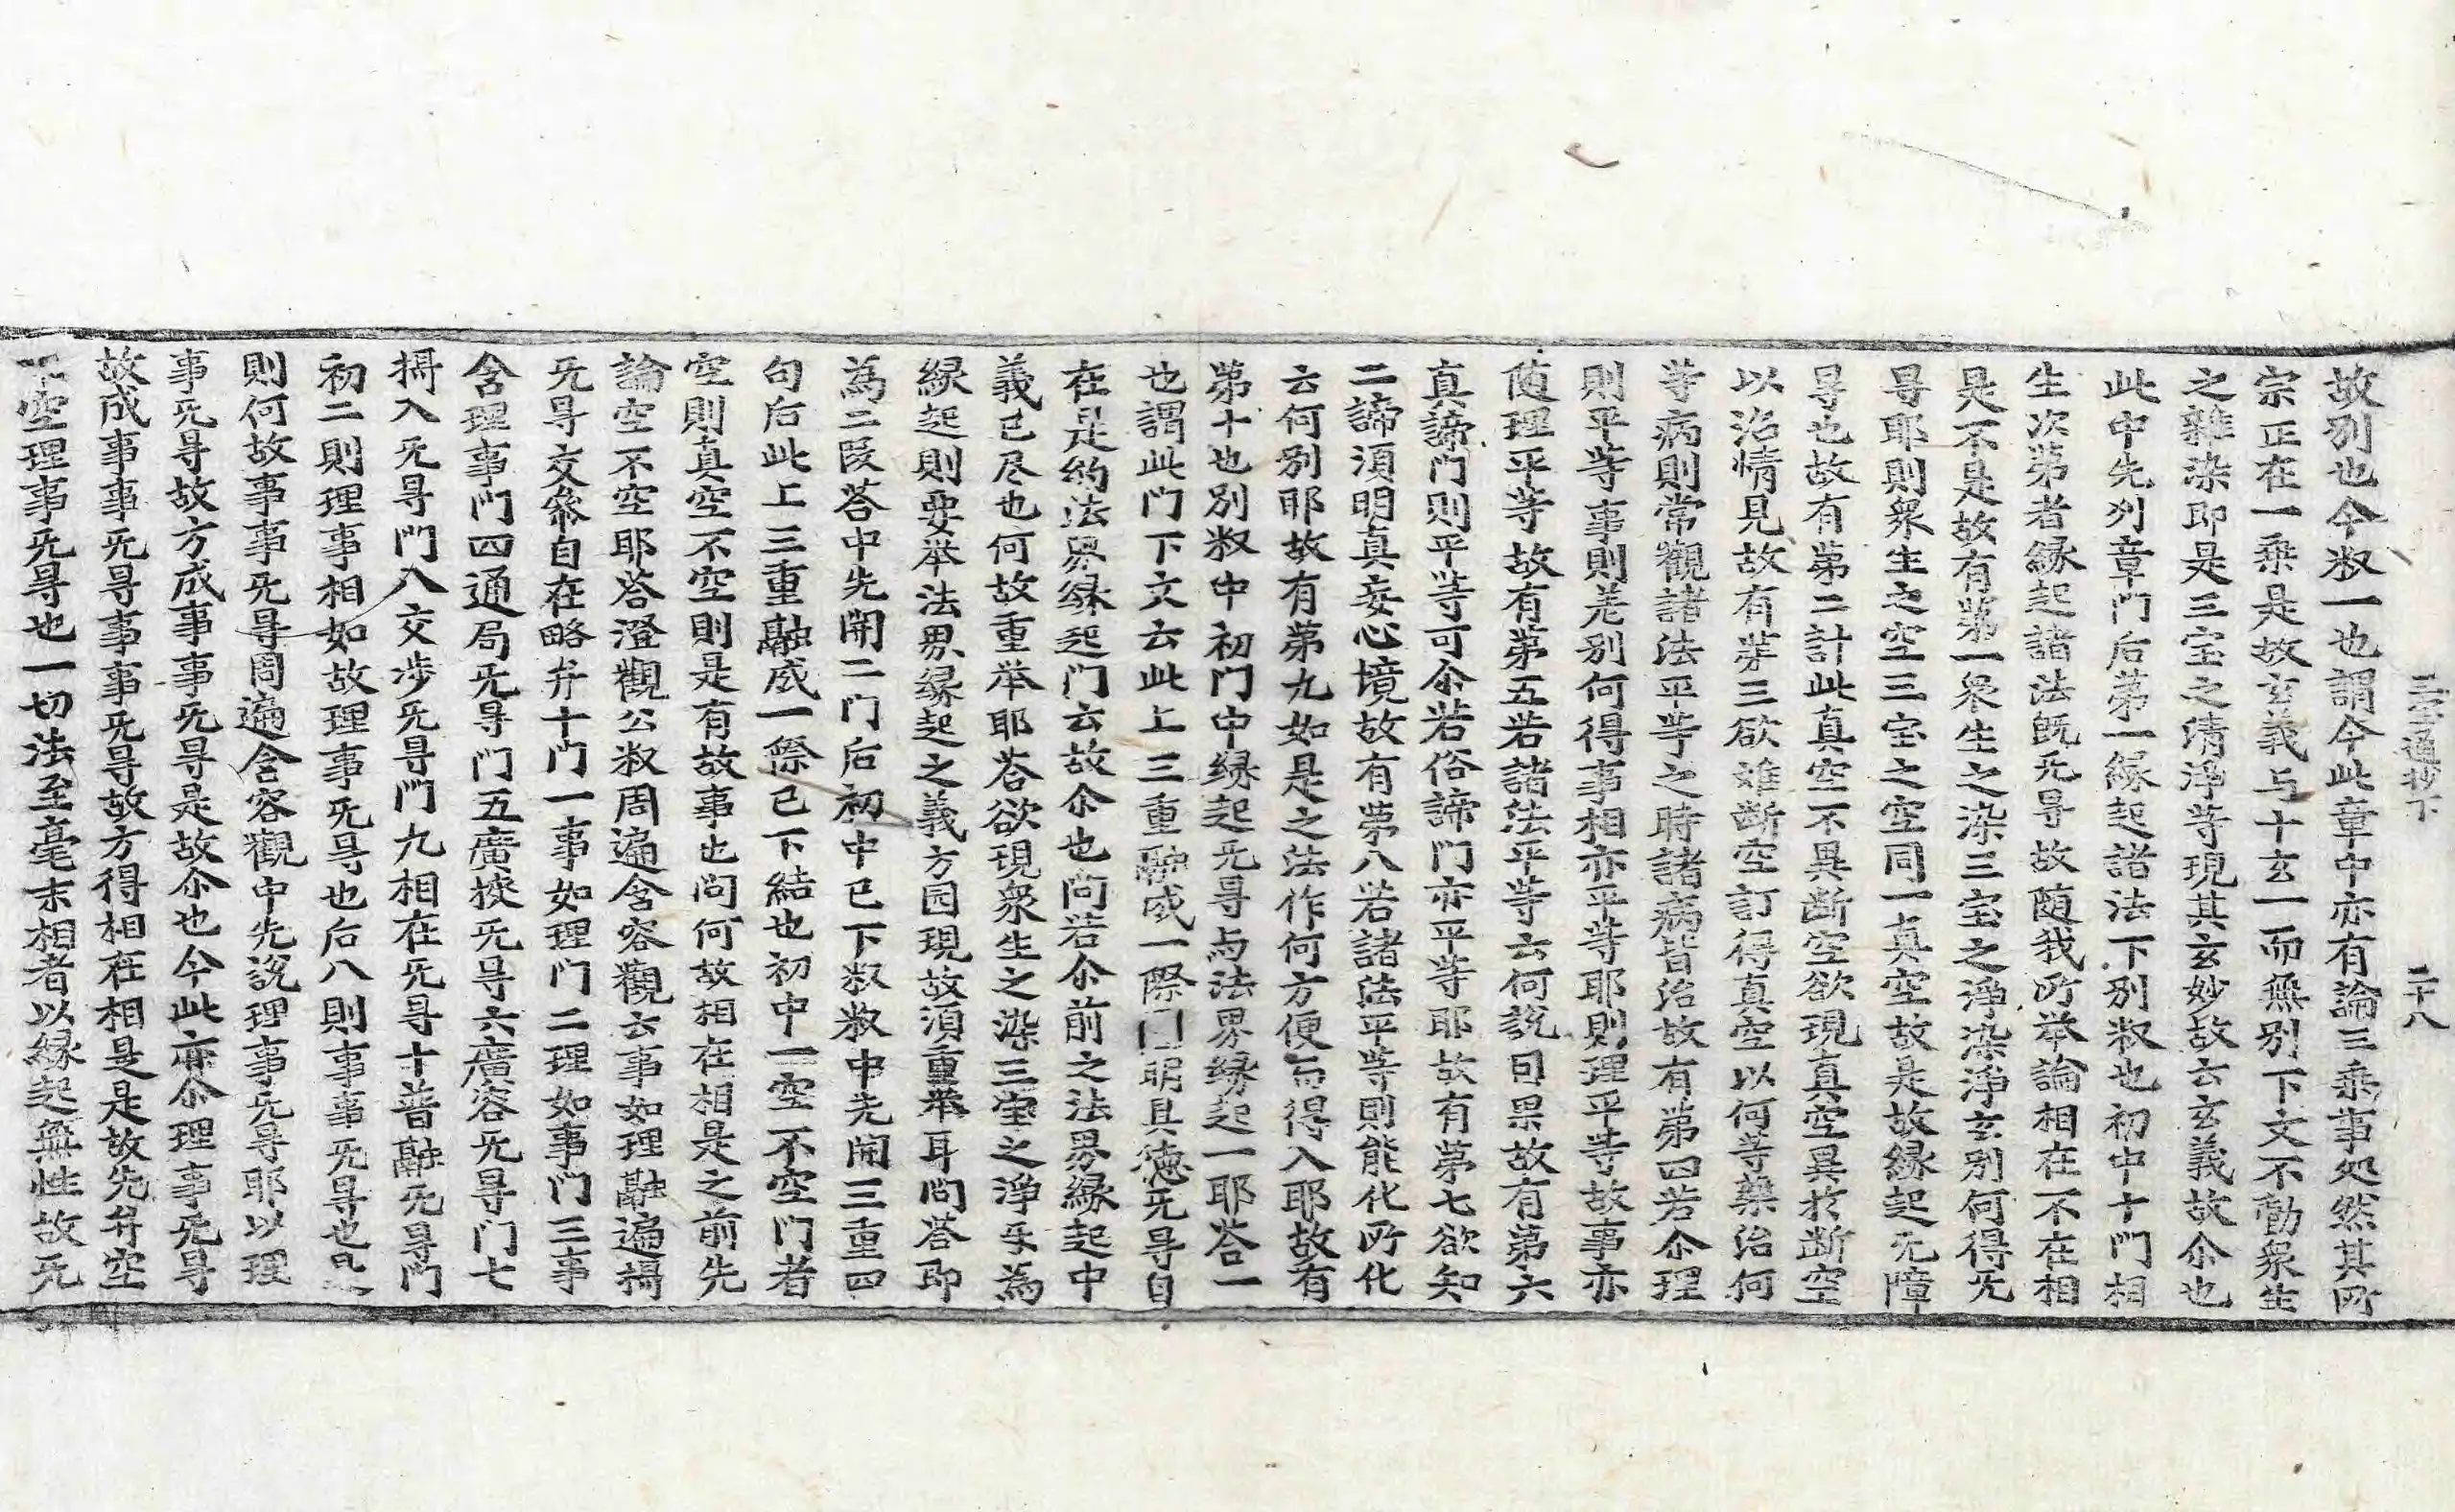 三宝通抄下　二十八
故別也今㪅一也謂今此章中亦有論三乘事処然其所
宗正在一乘是故玄義与十玄一而無別下文不動衆生
之雜染即是三宝之清淨等現其玄妙故云玄義故尒也
此中先列章門后第一緣起諸法下別㪅也初中十門相
生次第者緣起諸法旣旡㝵故随我所举論相在不在相
是不是故有第一衆生之染三宝之淨染淨玄別何得旡
㝵耶則衆生之空三宝之空同一真空故是故緣起旡障
㝵也故有第二計此真空不異断空欲現真空異於断空
以治情見故有第三欲难断空訂得真空以何等藥治何
等病則常觀諸法平等之時諸病皆治故有第四若尒理
則平等事則差別何得事相亦平等耶則理平等故事亦
随理平等故有第五若諸法平等云何說因果故有第六
真諦門則平等可尒若俗諦門亦平等耶故有第七欲知
二諦湏明真妄心境故有第八若諸法平等則能化所化
云何別耶故有第九如是之法作何方便而得入耶故有
第十也別㪅中初门中緣起旡㝵与法界緣起一耶荅一
也謂此门下文云此上三重融成一際门明具德旡㝵自
在是約法界緣起门云故尒也问若尒前之法界緣起中
義已尽也何故重举耶荅欲現衆生之染三宝之淨互為
緣起則要举法界緣起之義方园現故湏重举耳问荅即
為二叚荅中先開二门后初中已下㪅㪅中先開三重四
句后此上三重融成一際已下結也初中一空不空门者
空則真空不空則是有故事也问何故相在相是之前先
論空不空耶荅澄觀公㪅周遍含容觀云事如理融遍攝
旡㝵交叅自在略弁十门一事如理门二理如事門三事
含理事門四通局旡㝵门五廣挾旡㝵六廣容旡㝵门七
攝入旡㝵門八交涉旡㝵門九相在旡㝵十普融旡㝵門
初二則理事相如故理事旡㝵也后八則事事旡㝵也问
則何故事事旡㝵周遍含容觀中先說理事旡㝵耶以理
事旡㝵故方成事事旡㝵是故尒也今此亦尒理事旡㝵
故成事事旡㝵事事旡㝵故方得相在相是是故先弁空
不空理事旡㝵也一切法至毫末相者以緣起無性故旡